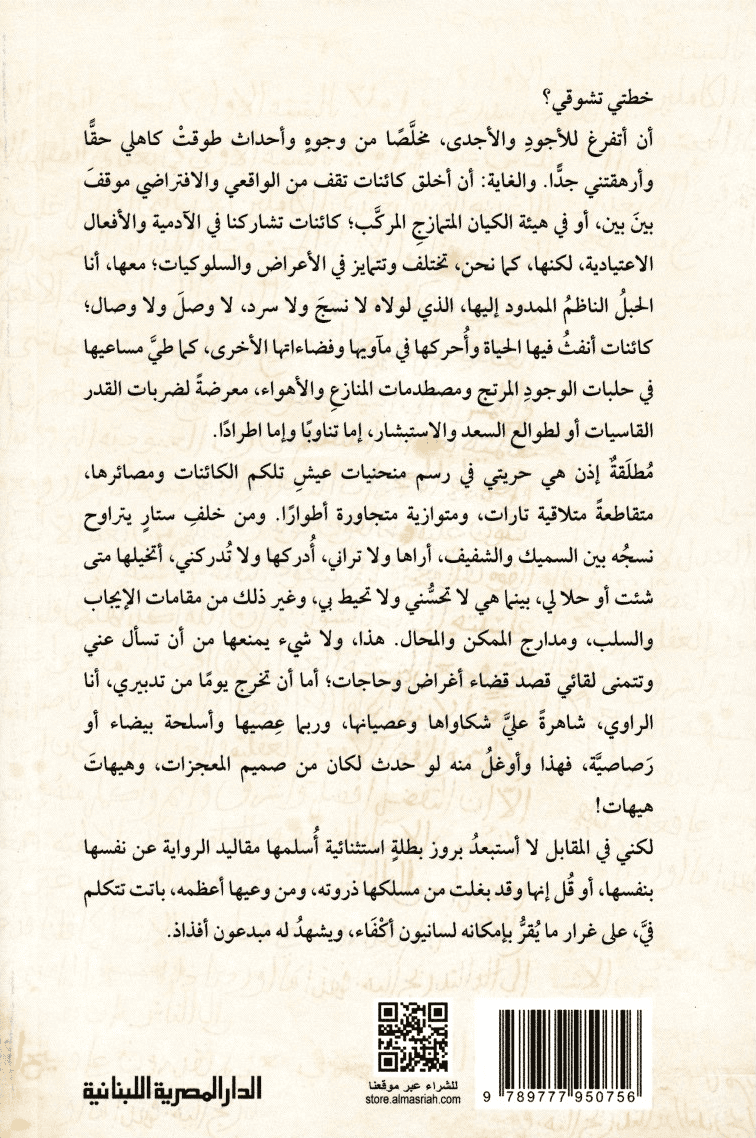 خطتي تشوقي؟
أن أتفرغ للأجودِ والأجدى، مخلَّصًا من وجوهٍ وأحداث طوقتْ كاهلي حقًّا
وأرهقتني جدًّا. والغاية: أن أخلق كائنات تقف من الواقعي والافتراضي موقفَ
بينَ بين، أو في هيئة الكيان المتمازجِ المركَّب؛ كائنات تشاركنا في الآدمية والأفعال
الاعتيادية، لكنها، كما نحن، تختلف وتتمايز في الأعراض والسلوكيات؛ معها، أنا
الحبلُ الناظمُ الممدود إليها، الذي لولاه لا نسجَ ولا سرد، لا وصلَ ولا وصال؛
كائنات أنفثُ فيها الحياة وأُحركها في مآويها وفضاءاتها الأخرى، كما طيَّ مساعيها
في حلبات الوجودِ المرتج ومصطدمات المنازعِ والأهواء، معرضةً لضربات القدر
القاسيات أو لطوالع السعد والاستبشار، إما تناوبًا وإما اطرادًا.
مُطلَقةٌ إذن هي حريتي في رسم منحنيات عيشِ تلكم الكائنات ومصائرها،
متقاطعةً متلاقية تارات، ومتوازية متجاورة أطوارًا. ومن خلفِ ستارٍ يتراوح
نسجُه بين السميك والشفيف، أراها ولا تراني، أُدركها ولا تُدركني، أتخيلها متى
شئت أو حلا لي، بينما هي لا تحسُّني ولا تحيط بي، وغير ذلك من مقامات الإيجاب
والسلب، ومدارج الممكن والمحال. هذا، ولا شيء يمنعها من أن تسأل عني
وتتمنى لقائي قصد قضاء أغراض وحاجات؛ أما أن تخرج يومًا من تدبيري، أنا
الراوي، شاهرةً عليَّ شكاواها وعصيانها، وربما عِصيها وأسلحة بيضاء أو
رَصاصيَّة، فهذا وأوغلُ منه لو حدث لكان من صميم المعجزات، وهيهاتَ
هيهات!
لكني في المقابل لا أستبعدُ بروز بطلةٍ استثنائية أُسلمها مقاليد الرواية عن نفسها
بنفسها، أو قُل إنها وقد بغلت من مسلكها ذروته، ومن وعيها أعظمه، باتت تتكلم
فيَّ، على غرار ما يُقرُّ بإمكانه لسانيون أكْفَاء، ويشهدُ له مبدعون أفذاذ.
الدار المصرية اللبنانية
للشراء عبر موقعنا
store.almasriah.com
9 789777 950756